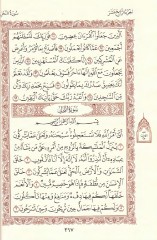 الجزء الرابع عشر
سورة النحل
الَّذِينَ جَعَلُوا الْقُرْءَانَ عِضِينَ ٩١ فَوَرَبِّكَ لَنَسْـَٔلَنَّهُمْ
أَجْمَعِينَ ٩٢ عَمَّا كَانُوا يَعْمَلُونَ ٩٣ فَاصْدَعْ بِمَا تُؤْمَرُ وَأَعْرِضْ
عَنِ الْمُشْرِكِينَ ٩٤ إِنَّا كَفَيْنَٰكَ الْمُسْتَهْزِءِينَ ٩٥ الَّذِينَ
يَجْعَلُونَ مَعَ اللَّهِ إِلَٰهًا ءَاخَرَ فَسَوْفَ يَعْلَمُونَ ٩٦ وَلَقَدْ نَعْلَمُ
أَنَّكَ يَضِيقُ صَدْرُكَ بِمَا يَقُولُونَ ٩٧ فَسَبِّحْ بِحَمْدِ رَبِّكَ وَكُن
مِّنَ السَّٰجِدِينَ ٩٨ وَاعْبُدْ رَبَّكَ حَتَّىٰ يَأْتِيَكَ الْيَقِينُ ٩٩
سورة النحل
بِسْمِ اللَّهِ الرَّحْمَٰنِ الرَّحِيمِ
أَتَىٰ أَمْرُ اللَّهِ فَلَا تَسْتَعْجِلُوهُ سُبْحَٰنَهُ وَتَعَٰلَىٰ عَمَّا يُشْرِكُونَ
١ يُنَزِّلُ الْمَلَٰٓئِكَةَ بِالرُّوحِ مِنْ أَمْرِهِ عَلَىٰ مَن يَشَآءُ مِنْ عِبَادِهِ
أَنْ أَنذِرُوٓا أَنَّهُ لَآ إِلَٰهَ إِلَّآ أَنَا فَاتَّقُونِ ٢ خَلَقَ السَّمَٰوَٰتِ
وَالْأَرْضَ بِالْحَقِّ تَعَٰلَىٰ عَمَّا يُشْرِكُونَ ٣ خَلَقَ الْإِنسَٰنَ
مِن نُّطْفَةٍ فَإِذَا هُوَ خَصِيمٌ مُّبِينٌ ٤ وَالْأَنْعَٰمَ خَلَقَهَا
لَكُمْ فِيهَا دِفْءٌ وَمَنَٰفِعُ وَمِنْهَا تَأْكُلُونَ ٥
وَلَكُمْ فِيهَا جَمَالٌ حِينَ تُرِيحُونَ وَحِينَ تَسْرَحُونَ ٦
٢٦٧